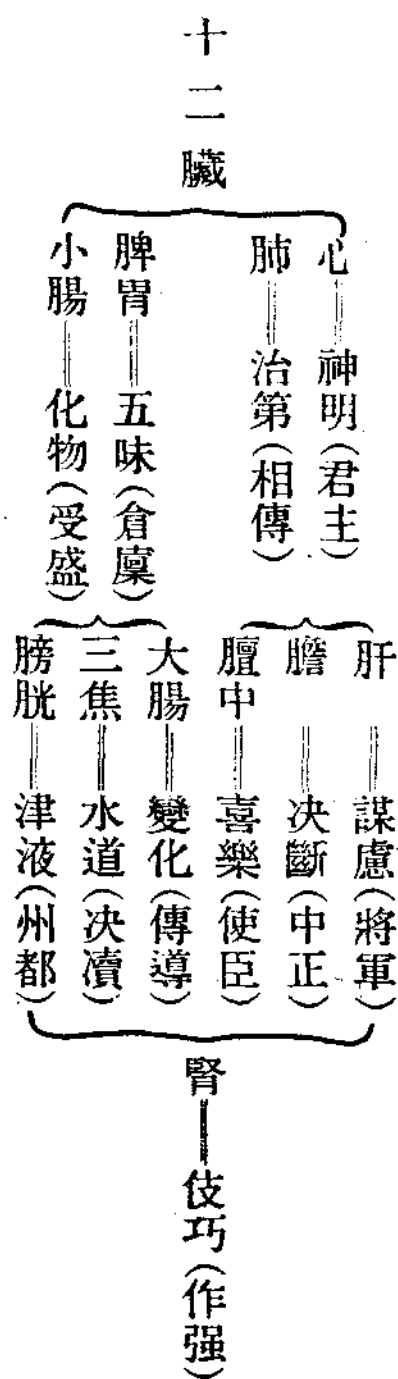 十二臟
心══神明(君主)
肺══治第(相傳)
脾胃══五味(倉廩)
小腸══化物(受盛)
肝══謀慮(將軍)
膽══決斷(中正)
膻中══喜樂(使臣)
大腸══變化(傳導)
三焦══水道(决瀆)
膀胱══津液(州都)
腎══伎巧(作强)